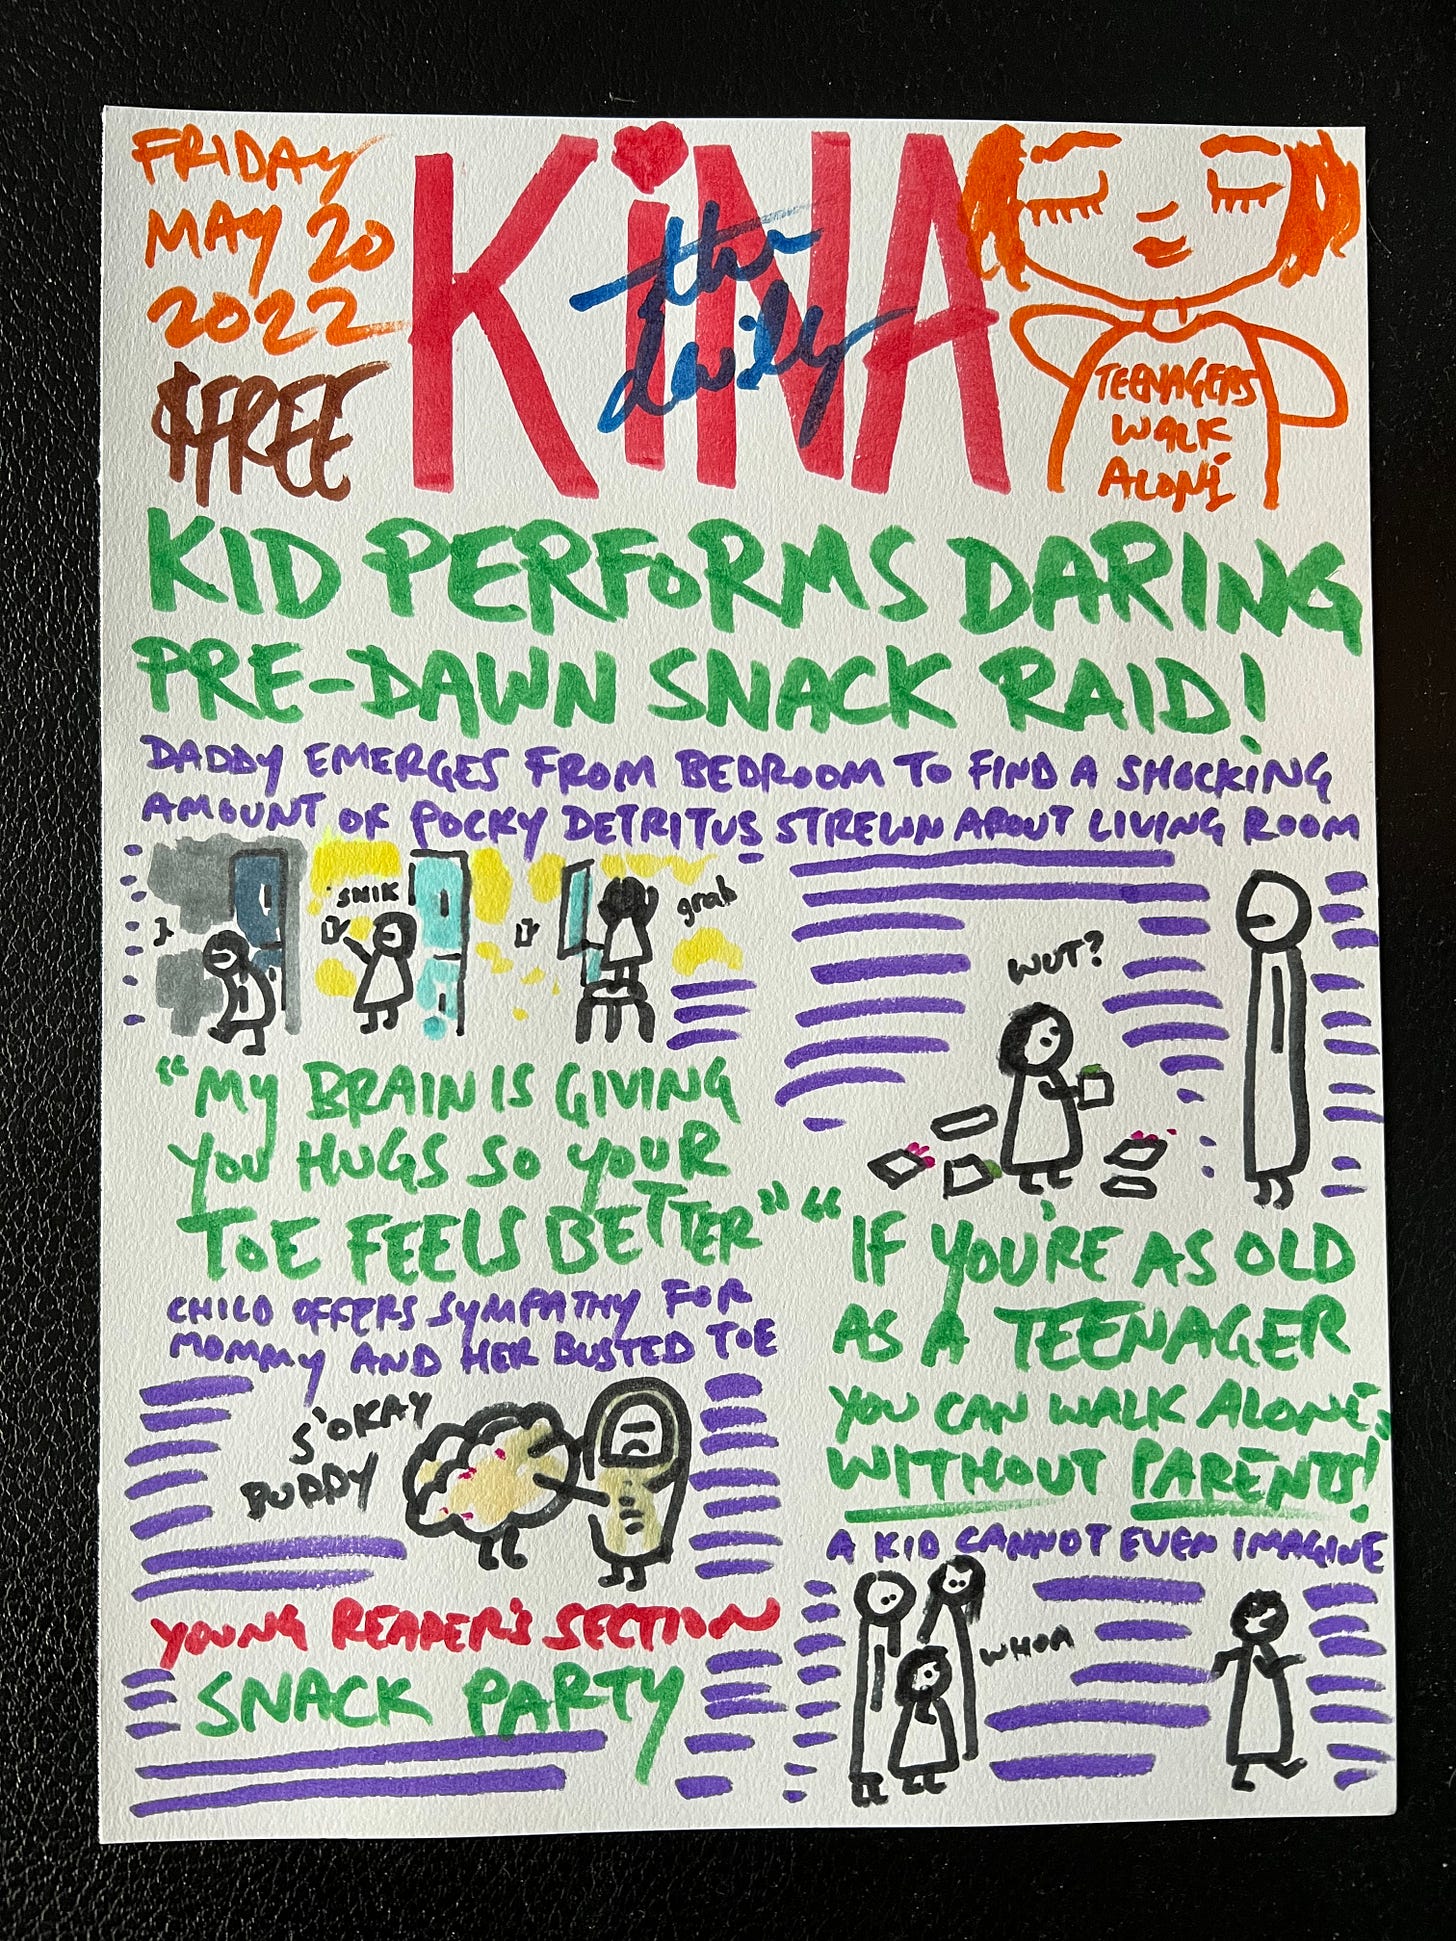 FRIDAY
MAY 20
2022
$FREE
KiNA
the
daily
TEENAGERS
WALK
ALONE
KID PERFORMS DARING
PRE-DAWN SNACK RAID!
DADDY EMERGES FROM BEDROOM TO FIND A SHOCKING
AMOUNT OF POCKY DETRITUS STREWN ABOUT LIVING ROOM
SNIK
grab
WUT?
"MY BRAIN IS GIVING
YOU HUGS SO YOUR
TOE FEELS BETTER"
CHILD OFFERS SYMPATHY FOR
MOMMY AND HER BUSTED TOE
S'OKAY
BUDDY
YOUNG READER'S SECTION
SNACK PARTY
"IF YOU'RE AS OLD
AS A TEENAGER
YOU CAN WALK ALONE,
WITHOUT PARENTS!"
A KID CANNOT EVEN IMAGINE
WHOA